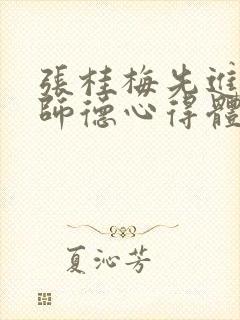 張桂梅先進
師德心得體
夏沁芳